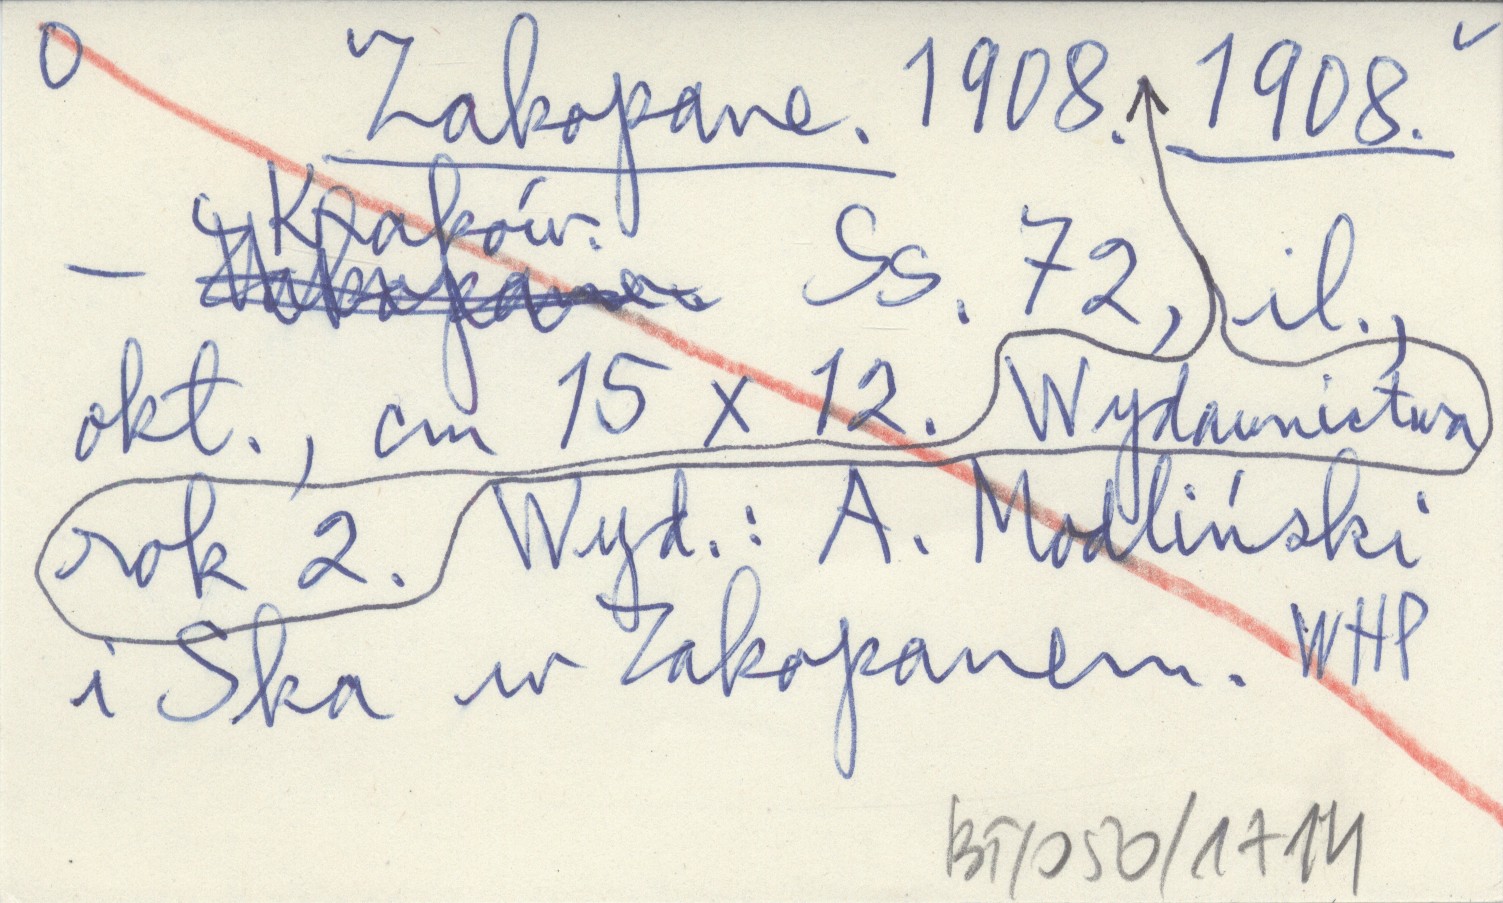 0 Zakopane. 1908. 1908.
Kraków.
– Zakopane Ss. 72, il.,
okt., cm 15 x 12. Wydawnictwa
rok 2. Wyd.: A. Modliński
i Ska w Zakopanem. WHP
BT/050/1714